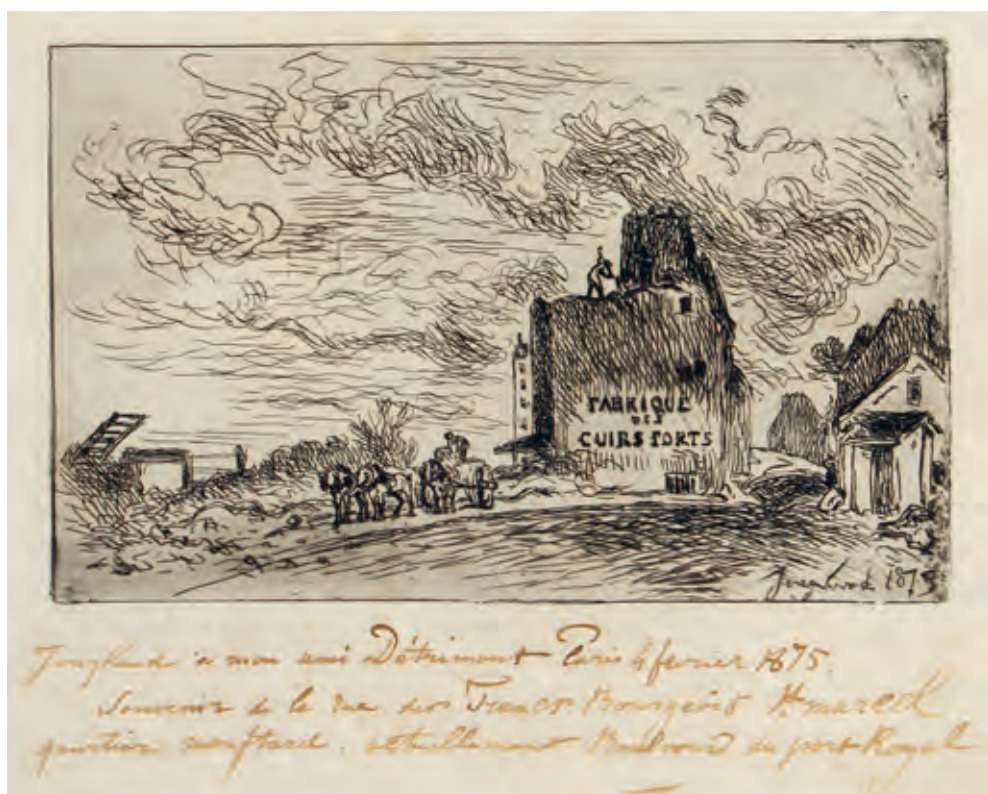 FABRIQUE
DES
CUIRS FORTS
Jongkind 1875
Jongkind à mon ami Détrimont Paris 4 fevrier 1875.
Souvenir de la rue des Francs-Bourgeois St marcel
quartier mouftard. actuellement Boulevard du port Royal